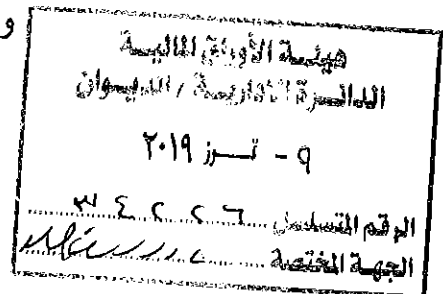 و
هيئة الأوراق المالية
الدائرة الادارية / الديوان
٩ - تموز ٢٠١٩
الرقم المتسلسل ٣٤٢٢٦
الجهة المختصة